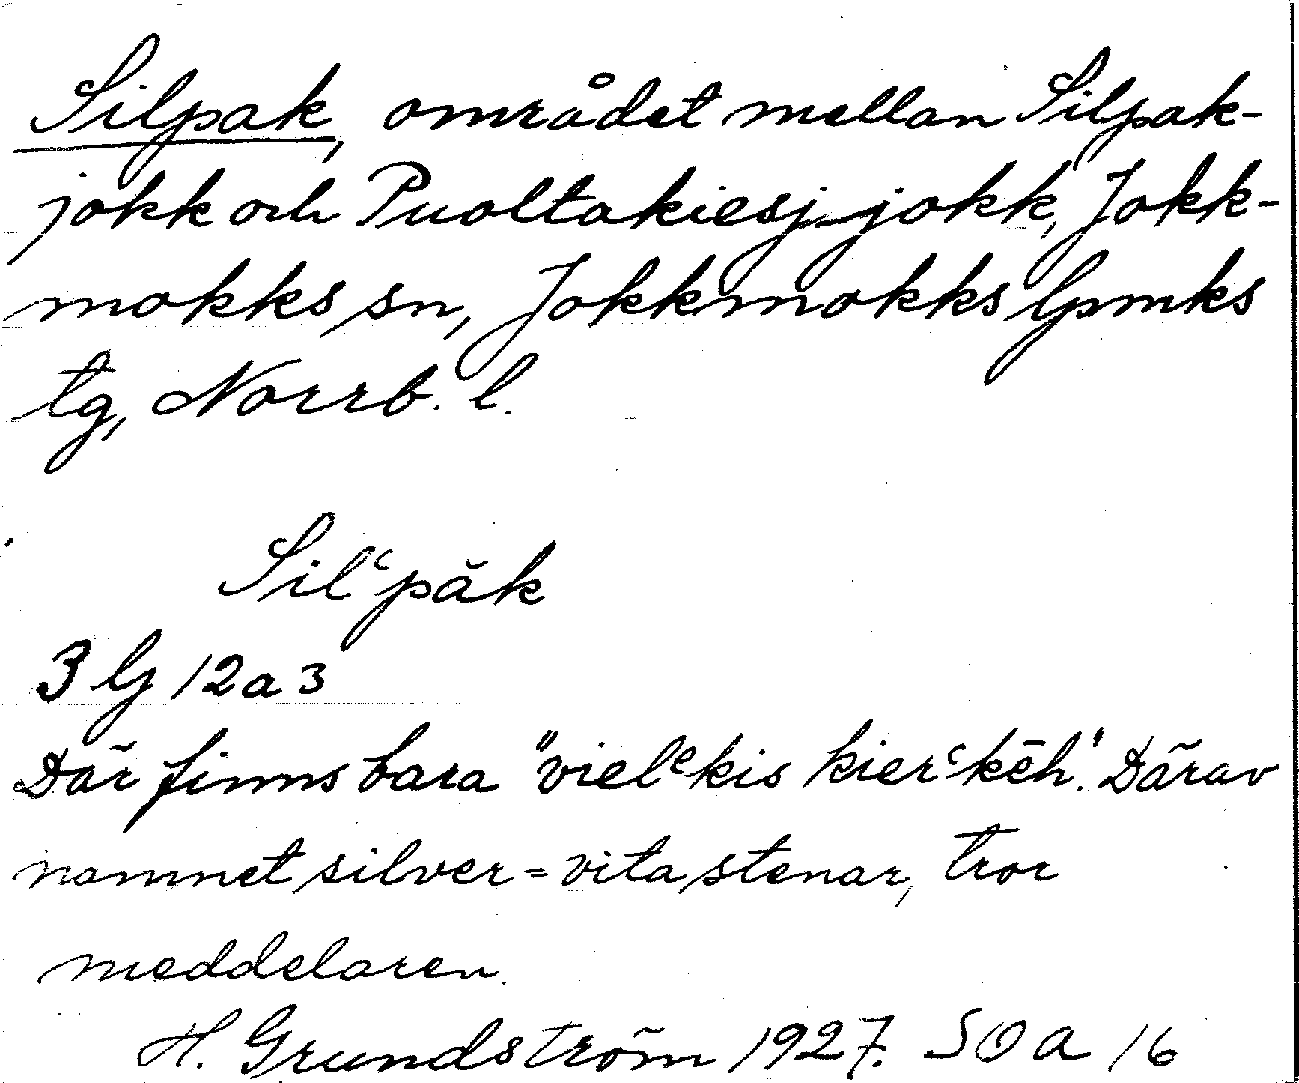 Silpak, området mellan Silpak-
jokk och Puoltakiesj-jokk, Jokk-
mokks sn, Jokkmokks lpmks
tg, Norrb. l.
Silʿpăk
3 lg 12a3
Där finns bara "vielᵉkis kierʿkēh". Därav
namnet silver = vita stenar, tror
meddelaren.
H. Grundström 1927. SOA 16